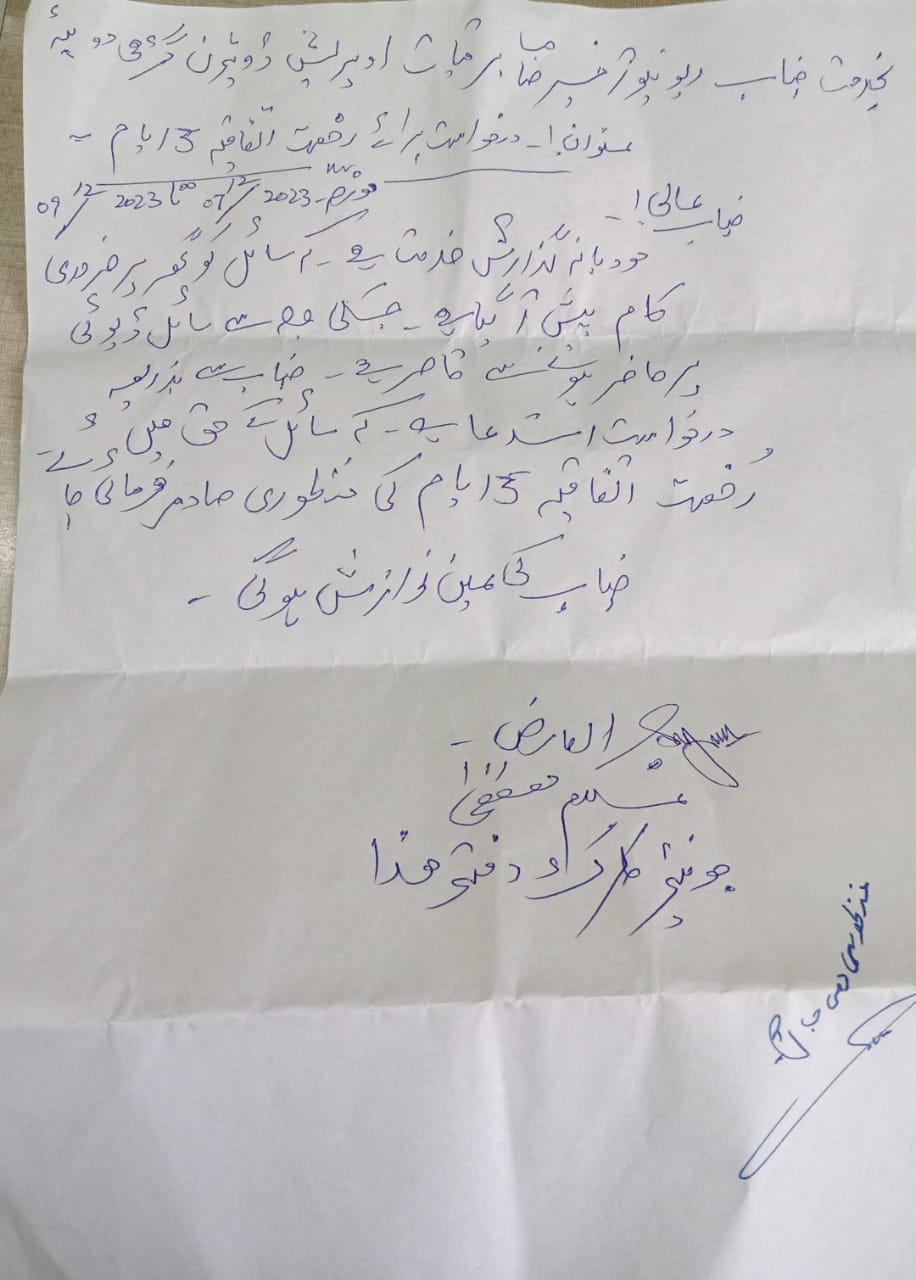 بخدمت جناب ریونیو آفیسر صاحب برقیات اوپریشن ڈویژن گڑھی دوپٹہ
عنوان:۔ درخواست برائے رخصت اتفاقیہ 3 ایام ۔
مورخہ 07/12/2023 تا 09/12/2023
جناب عالی!۔
مودبانہ گذارش خدمت ہے ۔ کہ سائل کو گھر پر ضروری
کام پیش آ گیا ہے ۔ جسکی وجہ سے سائل ڈیوٹی
پر حاضر ہونے سے قاصر ہے ۔ جناب سے بذریعہ
درخواست استدعا ہے ۔ کہ سائل کے حق میں
رُخصت اتفاقیہ 3 ایام کی منظوری صادر فرمائی جائے ۔
جناب کی عین نوازش ہو گی ۔
العارض ۔
مصطفیٰ
جونیئر کلرک دفتر ھذا